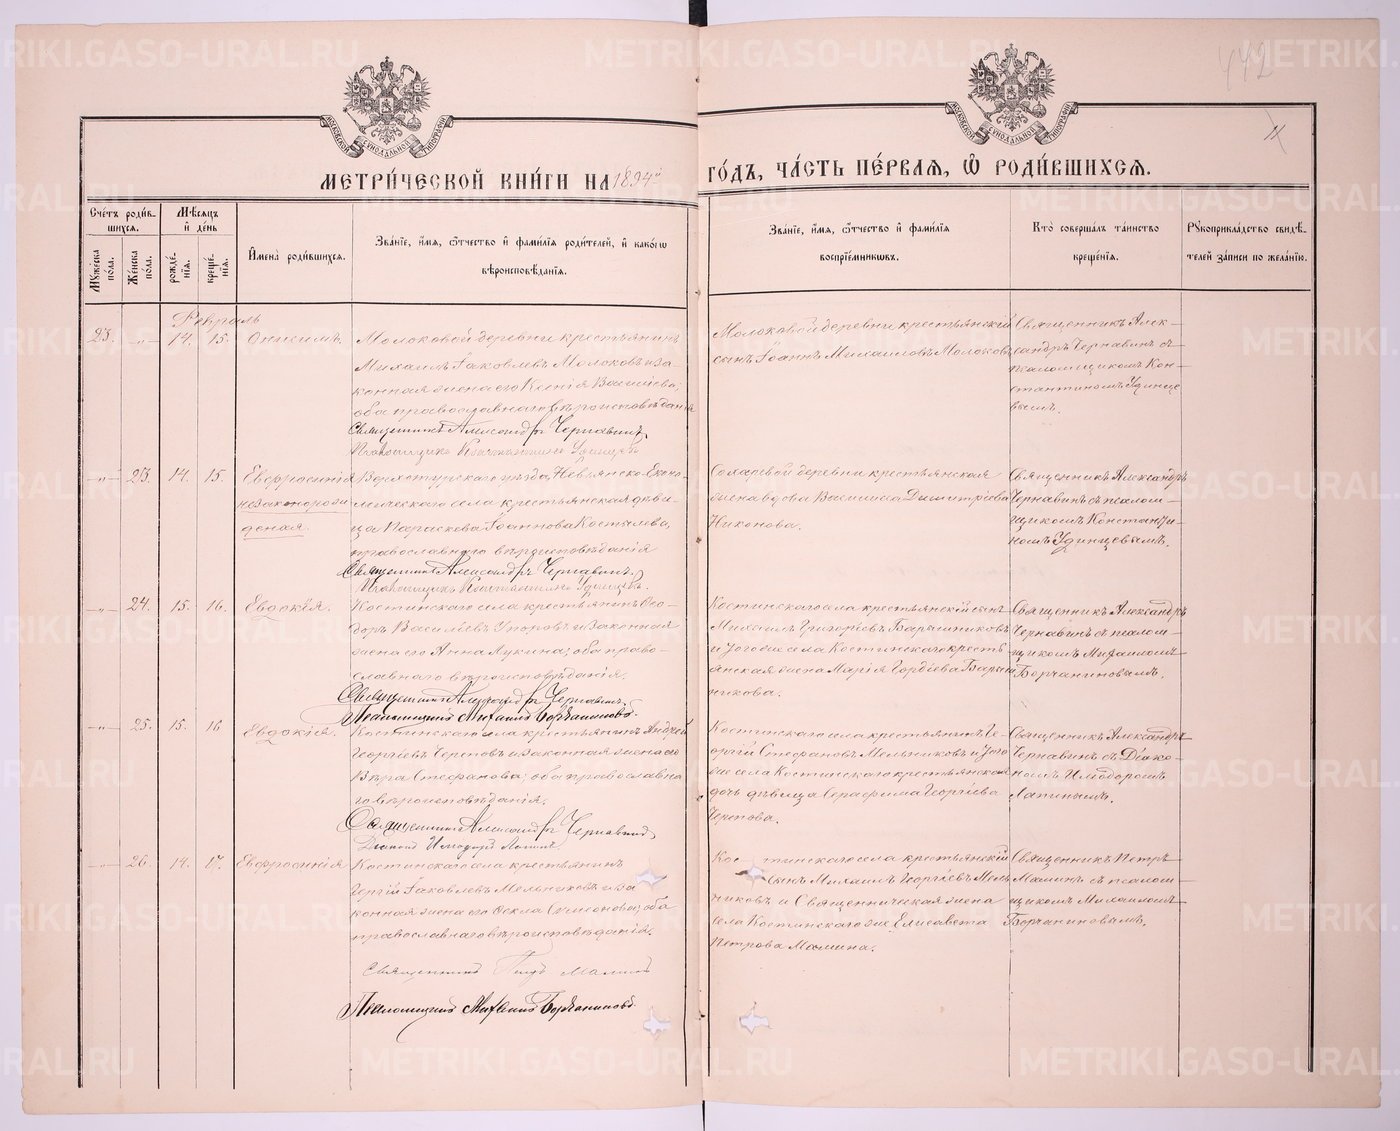 442
МЕТРИ́ЧЕСКОЙ КНИ́ГИ НА 1894й ГО́ДЪ, ЧА́СТЬ ПЕ́РВАЯ, Ѿ РОДИ́ВШИХСЯ.
Сче́тъ роди́вшихся.
Мꙋ́жеска по́ла.
Же́нска по́ла.
Мѣ́сяцъ и де́нь
рожде́нія.
креще́нія.
И̓мена̀ роди́вшихся.
Зва́ніе, и́мя, ѻ́тчество и фами́лія роди́телей, и како́гѡ вѣроисповѣ́данія.
Зва́ніе, и́мя, ѻ́тчество и фами́лія воспріе́мниковъ.
Кто̀ соверша́лъ та́инство креще́нія.
Рꙋкоприкла́дство свидѣ́телей за́писи по жела́нію.
Февраль
23. -"- 14. 15. Онисимъ.
Молоковой деревни крестьянинъ
Михаилъ Іаковлевъ Молоковъ и за-
конная жена его Ксенія
оба православнаго вѣроисповѣданія
Священникъ Александръ Чернавинъ.
Псаломщикъ Константинъ Удинцевъ
Молоковой деревни крестьянскій
сынъ Іоаннъ Михаиловъ Молоковъ
Священникъ Алек-
сандръ Чернавинъ съ
псаломщикомъ Кон-
стантиномъ Удинце
вымъ.
-"- 23. 14. 15. Евфросинія
незаконорож
деная.
Верхотурскаго уѣзда, Невьянско-Еконо-
мическаго села крестьянская дѣви-
ца Параскова Іоаннова Костылева,
православнаго вѣроисповѣданія
Священникъ Александръ Чернавинъ.
Псаломщикъ Константинъ Удинцевъ.
деревни крестьянская
жена вдова Василиса Димитріева
Никонова.
Священникъ Александръ
Чернавинъ съ псалом-
щикомъ Константи-
номъ Удинцевымъ.
-"- 24. 15. 16. Евдокія.
Костинскаго села крестьянинъ Ѳео-
доръ Васильевъ Упоровъ и законная
жена его Анна Лукина; оба право-
славнаго вѣроисповѣданія.
Священникъ Александръ Чернавинъ.
Псаломщикъ Михаилъ Борчаниновъ.
Костинскаго села крестьянскій сынъ
Михаилъ Григоріевъ Барышниковъ
и тогоже села Костинскаго кресть
янская жена Марія Гордіева Барыш
никова.
Священникъ Александръ
Чернавинъ съ псалом-
щикомъ Михаиломъ
Борчаниновымъ.
-"- 25. 15. 16 Евдокія.
Костинскаго села крестьянинъ Андрей
Георгіевъ Череповъ и законная жена его
Вѣра Стефанова; оба православна
го вѣроисповѣданія.
Священникъ Александръ Чернавинъ
Діаконъ Исидоръ Лапинъ
Костинскаго села крестьянинъ Ге-
оргій Стефановъ Мельниковъ и того
же села Костинскаго крестьянская
дочь дѣвица Серафима Георгіева
Черепова.
Священникъ Александръ
Чернавинъ съ Діако-
номъ Исидоромъ
Лапинымъ.
-"- 26. 14. 17. Евфросинія
Костинскаго села крестьянинъ
Георгій Іаковлевъ Мельниковъ и за
конная жена его Ѳекла Симеонова; оба
православнаго вѣроисповѣданія.
Священникъ Петръ Маминъ
Псаломщикъ Михаилъ Борчаниновъ
Костинскаго села крестьянскій
сынъ Михаилъ Георгіевъ Мель
никовъ и Священническая жена
села Костинскаго же Елисавета
Петрова Мамина.
Священникъ Петръ
Маминъ съ псалом
щикомъ Михаиломъ
Борчаниновымъ.
METRIKI.GASO-URAL.RU